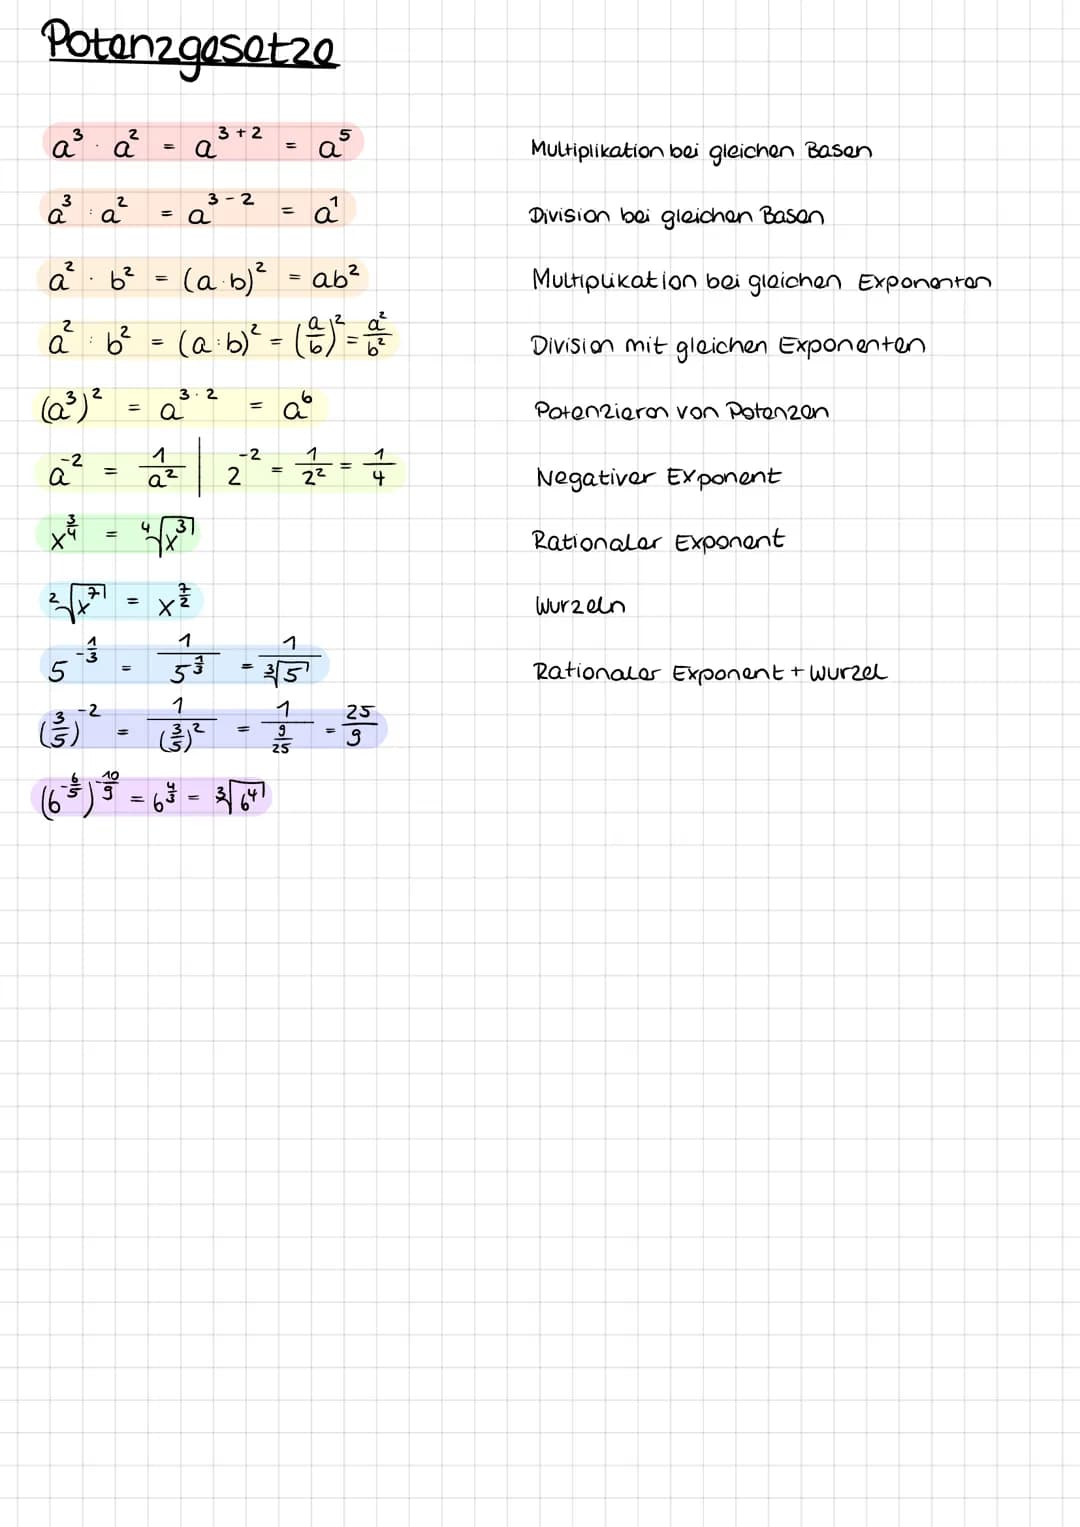 Potenzgesetze
a³ · a² = a³⁺² = a⁵ Multiplikation bei gleichen Basen
a³ : a² = a³⁻² = a¹ Division bei gleichen Basen
a² · b² = (a·b)² = ab² Multiplikation bei gleichen Exponenten
a² : b² = (a:b)² = (a/b)² = a²/b² Division mit gleichen Exponenten
(a³)² = a³·² = a⁶ Potenzieren von Potenzen
a⁻² = 1/a² | 2⁻² = 1/2² = 1/4 Negativer Exponent
x^(3/4) = ⁴√x³ Rationaler Exponent
²√x⁷ = x^(7/2) Wurzeln
5^(-1/3) = 1/5^(1/3) = 1/³√5 Rationaler Exponent + Wurzel
(3/5)⁻² = 1/(3/5)² = 1/(9/25) = 25/9
(6^(-6/5))^(-10/9) = 6^(4/3) = ³√6⁴